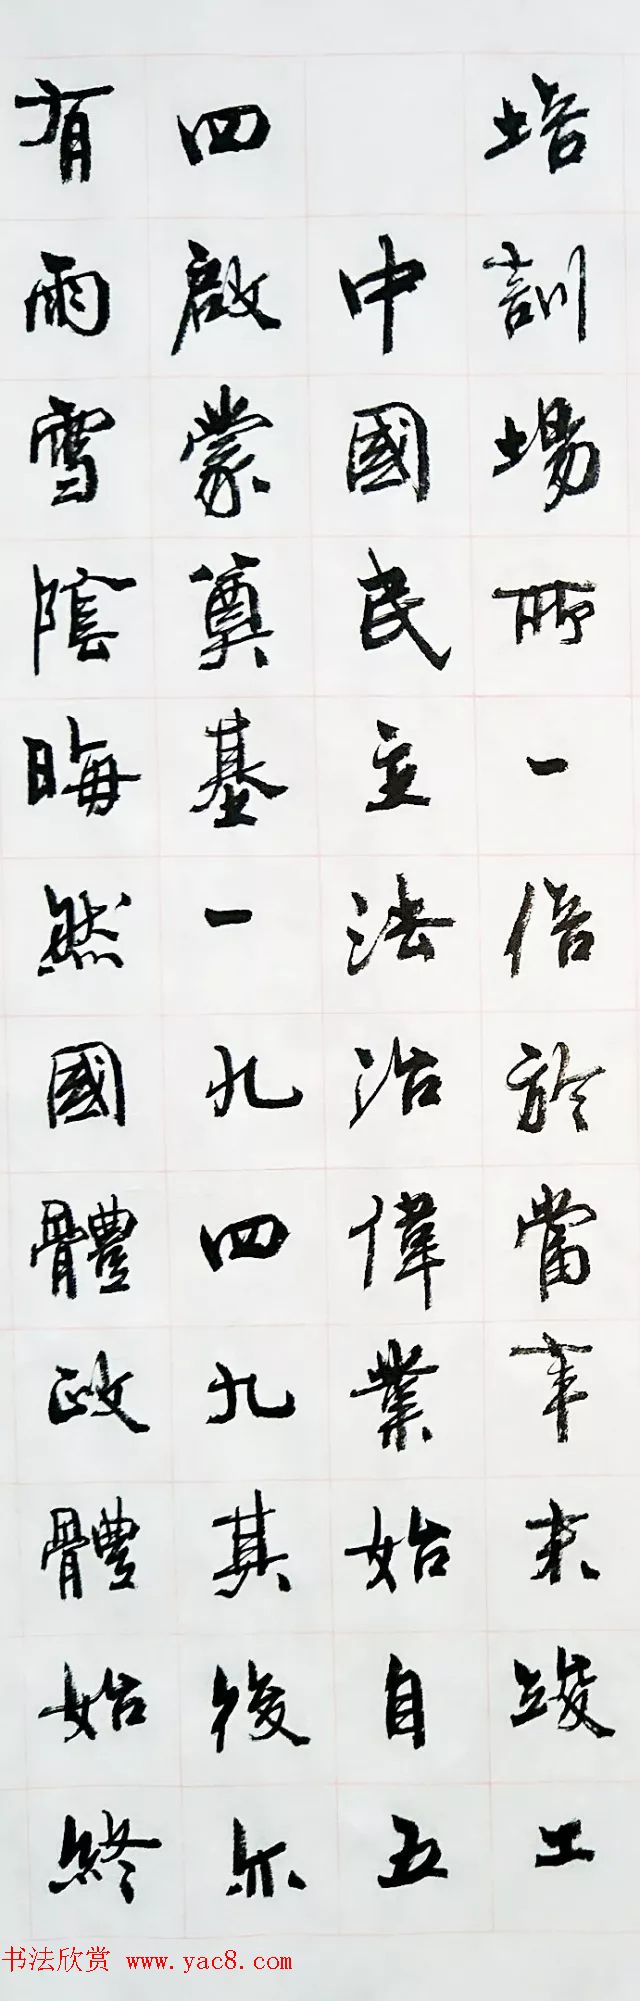 培訓場所一倍於當年末竣工
中國民主法治偉業始自五
四啟蒙奠基一九四九其後亦
有雨雪陰晦然國體政體始終
书法欣赏 www.yac8.com